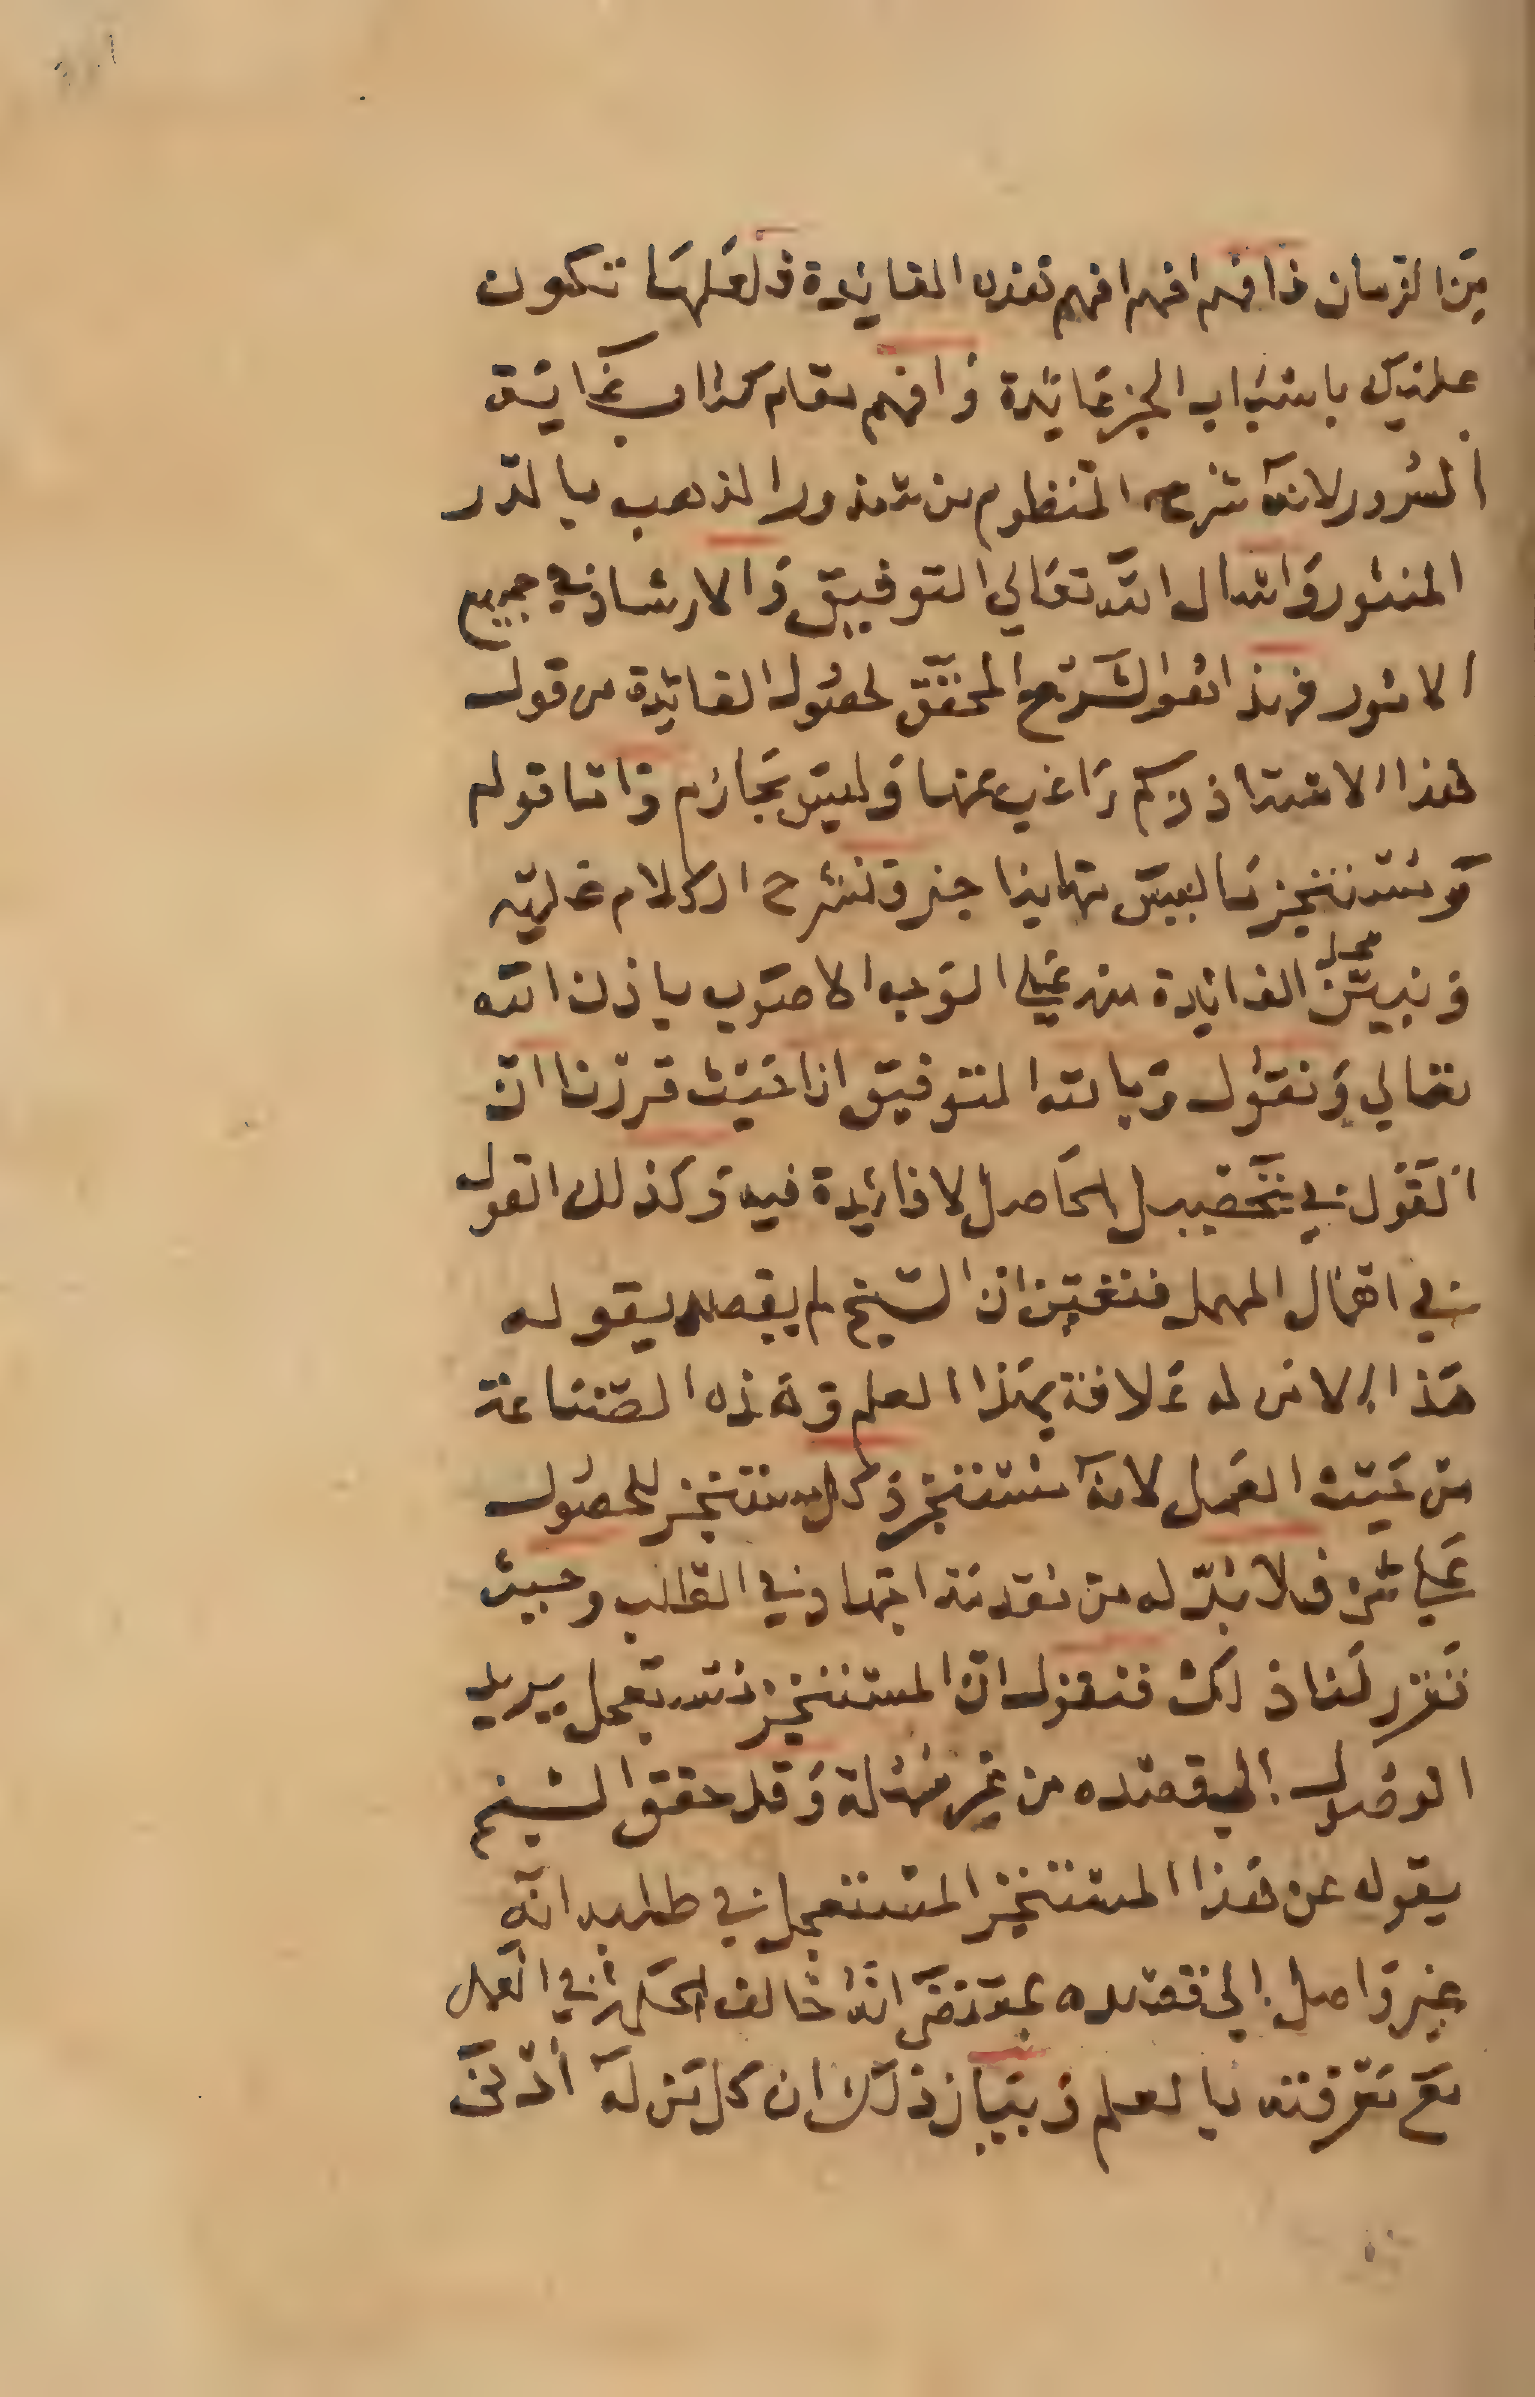 من الزمان فافهم افهم افهم هذه الفايدة فلعلها تكون
عليك باسباب الخير عائدة وافهم مقام كتاب غاية
السرور لانه شرح المنظوم من شذور الذهب بالدر
المنثور واسال الله تعالي التوفيق والارشاد في جميع
الامور فهذا هو الشرح المحقق لحصول الفائدة من قول
هذا الاستاذ وكم راغب عنها وليس بحازم واما قوله
ومستنجز ما ليس منها بناجز ونشرح الكلام عليه
ونبين محل الفايدة منه علي الوجه الاصوب باذن الله
تعالي ونقول وبالله التوفيق انا حيث قررنا ان
القول في تحصيل الحاصل لا فايدة فيه وكذلك القول
في اهمال المهمل فتعين ان الشيخ لم يقصد بقوله
هذا الا من له علاقة بهذا العلم وهذه الصناعة
من حيث العمل لانه مستنجز وكل مستنجز للحصول
علي شي فلا بد له من تقدمة اجتهاد في الطلب وحيث
تقرر لنا ذلك فنقول ان المستنجز مستعجل يريد
الوصول الي قصده من غير مهلة وقد حقق الشيخ
بقوله عن هذا المستنجز المستعجل في طلبه انه
غير واصل الي قصده بمقتضي انه خالف الحكمة في العمل
مع معرفته بالعلم وبيان ذلك ان كل من له ادني